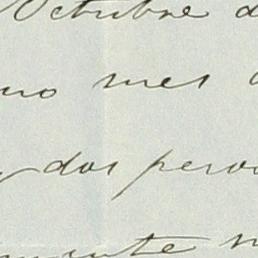 Octubre d
mo mes
y dos perso
mante n